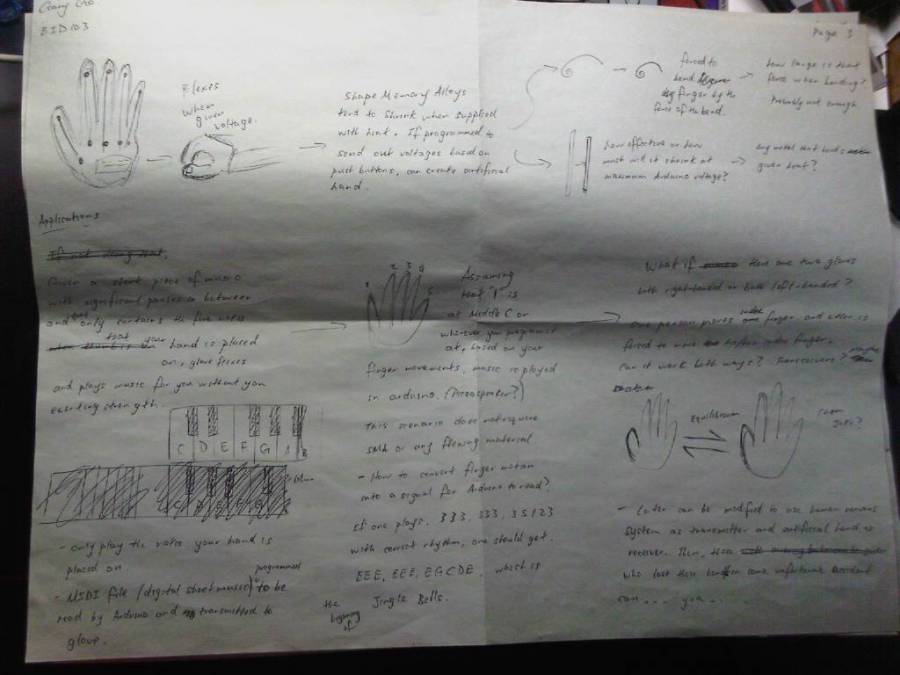 EID103
Page 3
Flexes
when
given
voltage.
Shape Memory Alloys
tend to shrink when supplied
with heat. If programmed to
send out voltages based on
push buttons, can create artificial
hand.
forced to
bend
finger by the
force of the bend.
how large is that
force when bending?
Probably not enough
how effective or how
much will it shrink at
maximum Arduino voltage?
any metal that bends
given heat?
Applications
If not doing that,
Given a short piece of music
with significant pauses in between
and only contains the five notes
that your hand is placed
on, glove flexes
and plays music for you without you
exerting strength.
C D E F G A B
C D E F G
- only play the notes your hand is
placed on
- MIDI file (digital sheet music) to be programmed
read by Arduino and transmitted to
glove.
1 2 3 4 5
Assuming
that 1 is
at Middle C or
wherever you program it
at, based on your
finger movements, music is played
in arduino. (Piezospeaker?)
This scenario does not require
SMA or any flexing material
- How to convert finger motion
into a signal for Arduino to read?
If one plays, 333, 333, 35123
with correct rhythm, one should get
EEE, EEE, EGCDE, which is
the
beginning
of
Jingle Bells.
What if there are two gloves
both right-handed or both left-handed?
One person moves index finger and other is
forced to move index finger.
Can it work both ways? Transceivers?
equilibrium
- Later can be modified to use human nervous
system as transmitter and artificial hand as
receiver. Then, those
who lost their hand from some unfortunate accident
can